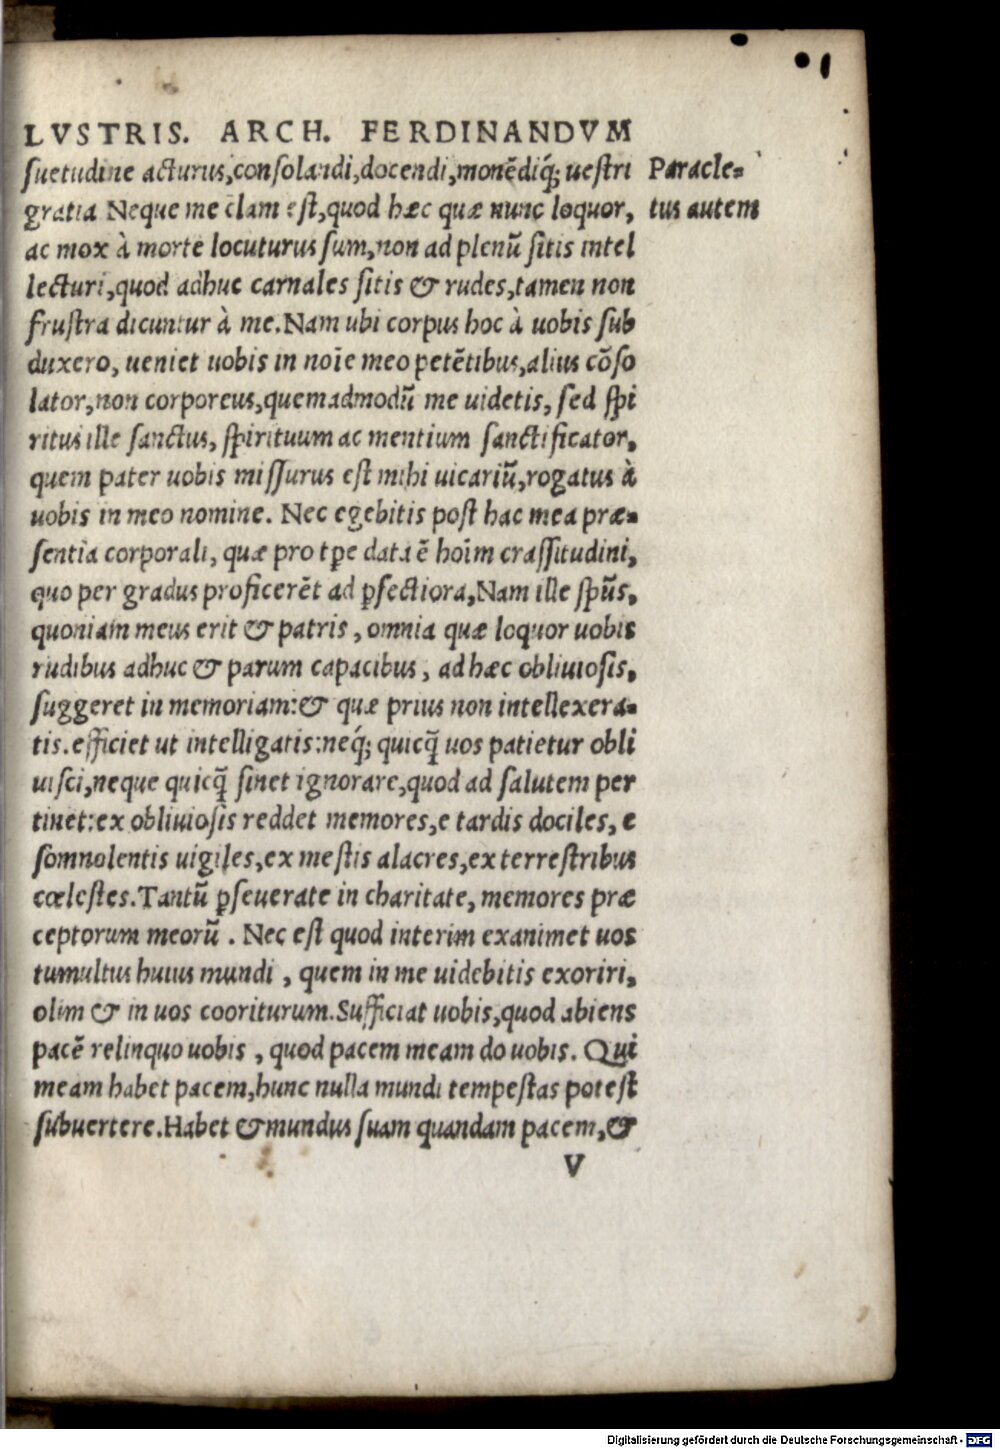 LVSTRIS. ARCH. FERDINANDVM
suetudine acturus, consolandi, docendi, monẽdiq́; uestri
Paracle=
gratia Neque me clam est, quod hæc quæ nunc loquor,
tus autem
ac mox à morte locuturus sum, non ad plenũ sitis intel
lecturi, quod adhuc carnales sitis & rudes, tamen non
frustra dicuntur à me. Nam ubi corpus hoc à uobis sub
duxero, ueniet uobis in noĩe meo petẽtibus, alius cõso
lator, non corporeus, quemadmodũ me uidetis, sed spi
ritus ille sanctus, spirituum ac mentium sanctificator,
quem pater uobis missurus est mihi uicariũ, rogatus à
uobis in meo nomine. Nec egebitis post hac mea præ=
sentia corporali, quæ pro tꝑe data ẽ hoĩm crassitudini,
quo per gradus proficerẽt ad ꝑfectiora, Nam ille spũs,
quoniam meus erit & patris, omnia quæ loquor uobis
rudibus adhuc & parum capacibus, ad hæc obliuiosis,
suggeret in memoriam: & quæ prius non intellexera=
tis. efficiet ut intelligatis: neq́; quicq̃ uos patietur obli
uisci, neque quicq̃ sinet ignorare, quod ad salutem per
tinet: ex obliuiosis reddet memores, e tardis dociles, e
somnolentis uigiles, ex mestis alacres, ex terrestribus
cœlestes. Tantũ ꝑseuerate in charitate, memores præ
ceptorum meorũ. Nec est quod interim exanimet uos
tumultus huius mundi, quem in me uidebitis exoriri,
olim & in uos cooriturum. Sufficiat uobis, quod abiens
pacẽ relinquo uobis, quod pacem meam do uobis. Qui
meam habet pacem, hunc nulla mundi tempestas potest
subuertere. Habet & mundus suam quandam pacem, &
V
Digitalisierung gefördert durch die Deutsche Forschungsgemeinschaft - DFG